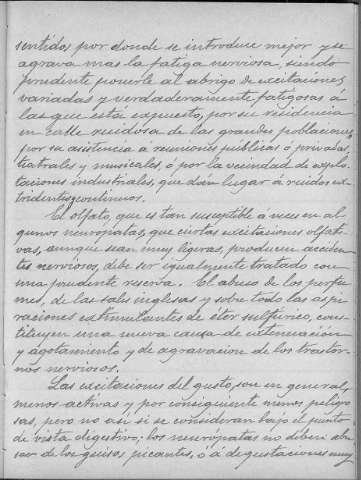 sentidos por donde se introduce mejor y se
agrava mas la fatiga nerviosa, siendo
prudente ponerle al abrigo de excitaciones
variadas y verdaderamente fatigosas á
las que está expuesto, por su residencia
en calle ruidosa de las grandes poblaciones
por su asistencia á reuniones públicas ó privadas,
teatrales y musicales, ó por la vecindad de explo-
taciones industriales, que dán lugar á ruidos es-
tridentes continuos.
El olfato, que es tan susceptible á veces en al-
gunos neurópatas, que ciertas excitaciones olfati-
vas, aunque sean muy ligeras, producen acciden-
tes nerviosos, debe ser igualmente tratado con
una prudente reserva. El abuso de los perfu-
mes, de las sales inglesas y sobre todo las aspi-
raciones estimulantes de éter sulfúrico, cons-
tituyen una nueva causa de extenuación
y agotamiento y de agravacion de los trastor-
nos nerviosos.
Las excitaciones del gusto, son en general,
menos activas y por consiguiente menos peligro-
sas, pero no asi si se consideran bajo el punto
de vista digestivo; los neurópatas no deben abu-
sar de los guisos picantes, ó á degustaciones muy